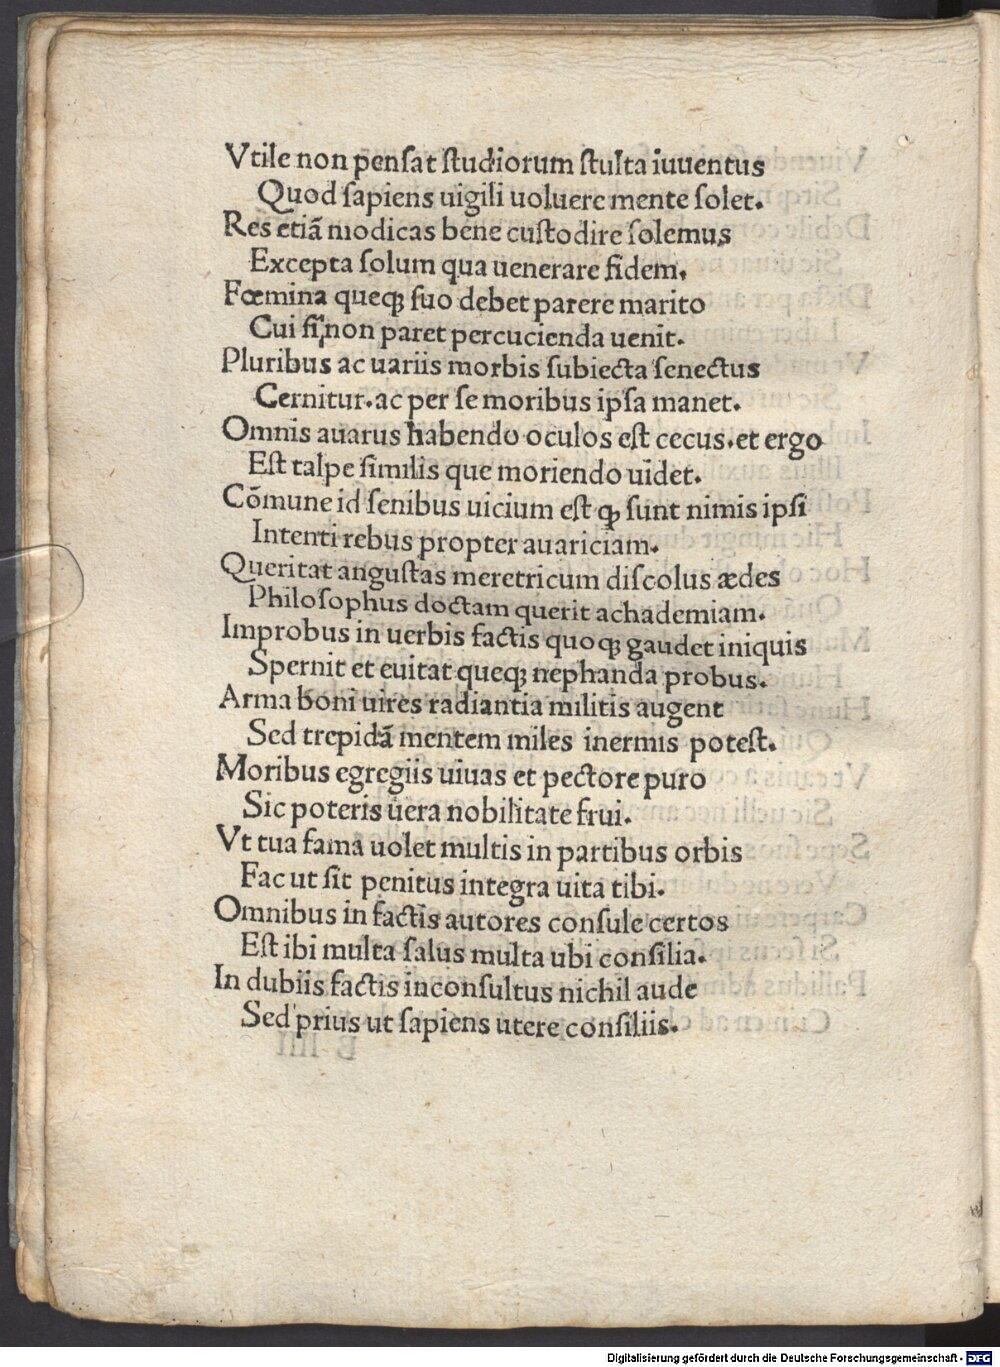 Vtile non penſat ſtudiorum ſtulta iuuentus
Quod ſapiens uigili uoluere mente ſolet.
Res etiā modicas bene cuſtodire ſolemus
Excepta ſolum qua uenerare fidem.
Fœmina queqꝫ ſuo debet parere marito
Cui ſi non paret percucienda uenit.
Pluribus ac uariis morbis ſubiecta ſenectus
Cernitur. ac per ſe moribus ipſa manet.
Omnis auarus habendo oculos eſt cecus. et ergo
Eſt talpe ſimilis que moriendo uidet.
Cōmune id ſenibus uicium eſt qꝫ ſunt nimis ipſi
Intenti rebus propter auariciam.
Queritat anguſtas meretricum diſcolus ædes
Philoſophus doctam querit achademiam.
Improbus in uerbis factis quoqꝫ gaudet iniquis
Spernit et euitat queqꝫ nephanda probus.
Arma boni uires radiantia militis augent
Sed trepidā mentem miles inermis poteſt.
Moribus egregiis uiuas et pectore puro
Sic poteris uera nobilitate frui.
Vt tua fama uolet multis in partibus orbis
Fac ut ſit penitus integra uita tibi.
Omnibus in factis autores conſule certos
Eſt ibi multa ſalus multa ubi conſilia.
In dubiis factis inconſultus nichil aude
Sed prius ut ſapiens utere conſiliis.
Digitalisierung gefördert durch die Deutsche Forschungsgemeinschaft - DFG